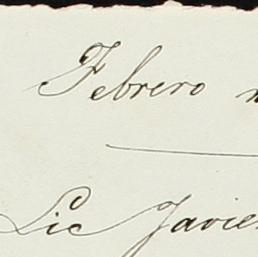 Febrero
Lic Javier